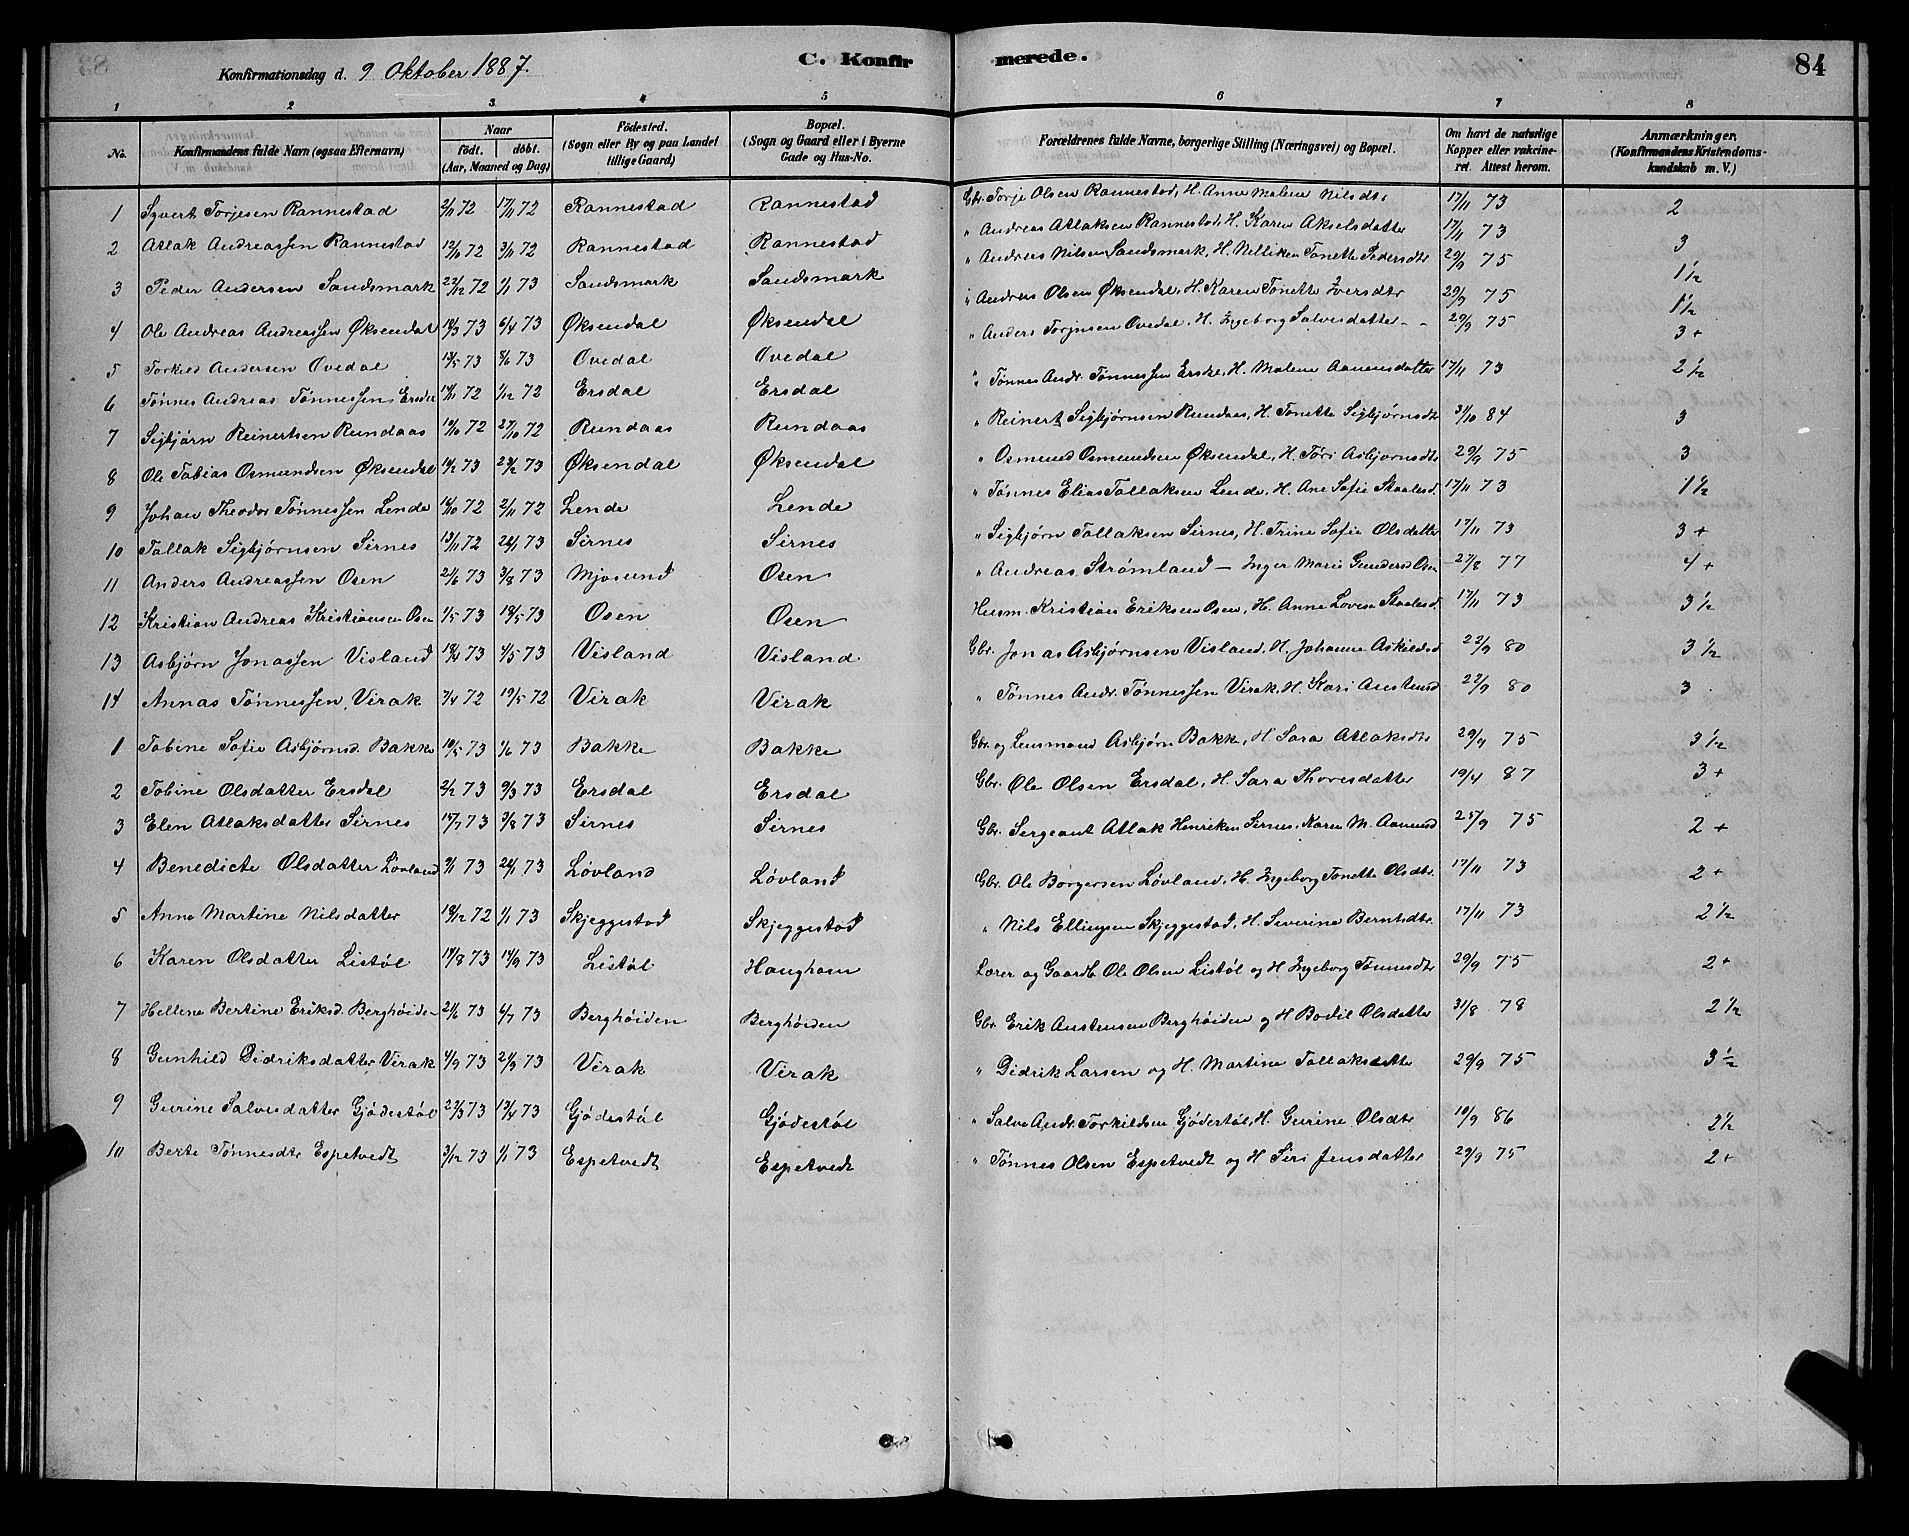 Konfirmationsdag d. 9 Oktober 1887.
C. Konfirmerede.
84
1 2 3 4 5 6 7 8
No. | Konfirmandens fulde Navn (ogsaa Efternavn) | Naar födt. döbt. (Aar, Maaned og Dag) | Födested. (Sogn eller By og paa Landet tillige Gaard) | Bopæl. (Sogn og Gaard eller i Byerne Gade og Hus-No. | Forældrenes fulde Navne, borgerlige Stilling (Næringsvei) og Bopæl. | Om havt de naturlige Kopper eller vakcineret. Attest herom. | Anmærkninger. (Konfirmandens Kristendomskundskab m. V.)
1 Syvert Torjesen Rannestad 2/11 72 17/11 72 Rannestad Rannestad Gbr. Torje Olsen Rannestad, H. Anne Malene Nilsdtr 17/11 73 2
2 Atlak Andreassen Rannestad 12/10 72 3/11 72 Rannestad Rannestad " Andreas Atlaksen Rannestad, H. Karen Akselsdatter 17/11 73 3
3 Peder Andersen Sandsmark 22/12 72 1/1 73 Sandsmark Sandsmark " Andreas Nilsen Sandsmark, H. Nilliken Tonette Pedersdtr 29/9 75 1½
4 Ole Andreas Andreassen Øksendal 18/3 73 6/4 73 Øksendal Øksendal " Andreas Olsen Øksendal, H. Karen Tonette Iversdtr 29/9 75 1½
5 Torkild Andersen Ovedal 13/5 73 8/6 73 Ovedal Ovedal " Anders Torjusen Ovedal, H. Ingeborg Salvesdatter - - 29/9 75 3+
6 Tønnes Andreas Tønnessen Ersdal 14/11 72 1/12 72 Ersdal Ersdal " Tønnes Andr. Tønnessen Ersdal, H. Malene Aanensdatter 17/11 73 2½
7 Sigbjørn Reinertsen Rundaas 10/10 72 27/10 72 Rundaas Rundaas " Reinert Sigbjørnsen Rundaas, H. Tonette Sigbjørnsdtr 31/10 84 3
8 Ole Tobias Osmundsen Øksendal 14/2 73 23/2 73 Øksendal Øksendal " Osmund Osmundsen Øksendal, H. Tori Asbjørnsdtr 29/9 75 3
9 Johan Theodor Tønnessen Lende 16/10 72 2/11 72 Lende Lende " Tønnes Elias Tallaksen Lende, H. Ane Sofie Staalesd. 17/11 73 1½
10 Tallak Sigbjørnsen Sirnes 13/11 72 26/1 73 Sirnes Sirnes " Sigbjørn Tallaksen Sirnes, H. Trine Sofie Olsdatter 17/11 73 3+
11 Anders Andreassen Osen 21/6 73 3/8 73 Mjosund Osen " Andreas Strømland - Inger Marie Gundersd Osen 27/8 77 4+
12 Kristian Andreas Kristiansen Osen 1/5 73 18/5 73 Osen Osen Husm. Kristian Eriksen Osen, H. Anne Lovise Staalesd. 17/11 73 3½
13 Asbjørn Jonassen Visland 18/4 73 4/5 73 Visland Visland Gbr. Jonas Asbjørnsen Visland, H. Johanne Askildsd 22/9 80 3½
14 Annas Tønnessen Virak 7/4 72 19/5 72 Virak Virak " Tønnes Andr. Tønnessen Virak, H. Kari Austensd 22/9 80 3
1 Tobine Sofie Asbjørnsd. Bakke 10/5 73 1/6 73 Bakke Bakke Gbr. og Lensmand Asbjørn Bakk, H. Sara Atlaksdtr 29/9 75 3½
2 Tobine Olsdatter Ersdal 2/2 73 9/3 73 Ersdal Ersdal Gbr. Ole Olsen Ersdal, H. Sara Thoresdatter 19/4 87 3+
3 Elen Atlaksdatter Sirnes 15/7 73 3/8 73 Sirnes Sirnes Gbr. Sergeant Atlak Henriksen Sirnes, Karen M. Aamund 25/9 75 2+
4 Benedicte Olsdatter Løvland 9/1 73 26/1 73 Løvland Løvland Gbr. Ole Borgersen Løvland, H. Ingeborg Tonette Olsdtr. 17/11 73 2+
5 Anne Martine Nilsdatter 18/12 72 1/1 73 Skjeggestad Skjeggestad " Nils Ellingsen Skjeggestad, H. Severine Berntsdtr. 17/11 73 2½
6 Karen Olsdatter Listøl 14/8 73 14/9 73 Listøl Haughom Lærer og Gaardb. Ole Olsen Listøl og H Ingeborg Tønnesdtr 29/9 75 2+
7 Hellene Bertine Eriksd. Berghöiden 21/6 73 6/7 73 Berghöiden Berghöiden Gbr. Erik Austensen Berghöiden og H Bodil Olsdatter 31/8 78 2½
8 Gunhild Didriksdatter Virak 4/9 73 21/9 73 Virak Virak " Didrik Larsen og H. Martine Tallaksdatter 29/9 75 3½
9 Gurine Salvesdatter Gjödestöl 22/3 73 13/4 73 Gjödestöl Gjödestöl " Salve Andr. Torkildsen Gjödestöl, H. Gurine Olsdtr 10/9 86 2½
10 Berte Tønnesdtr Espetvedt 3/12 73 1/1 73 Espetvedt Espetvedt " Tønnes Olsen Espetvedt og H Siri Jensdatter 29/9 75 2+